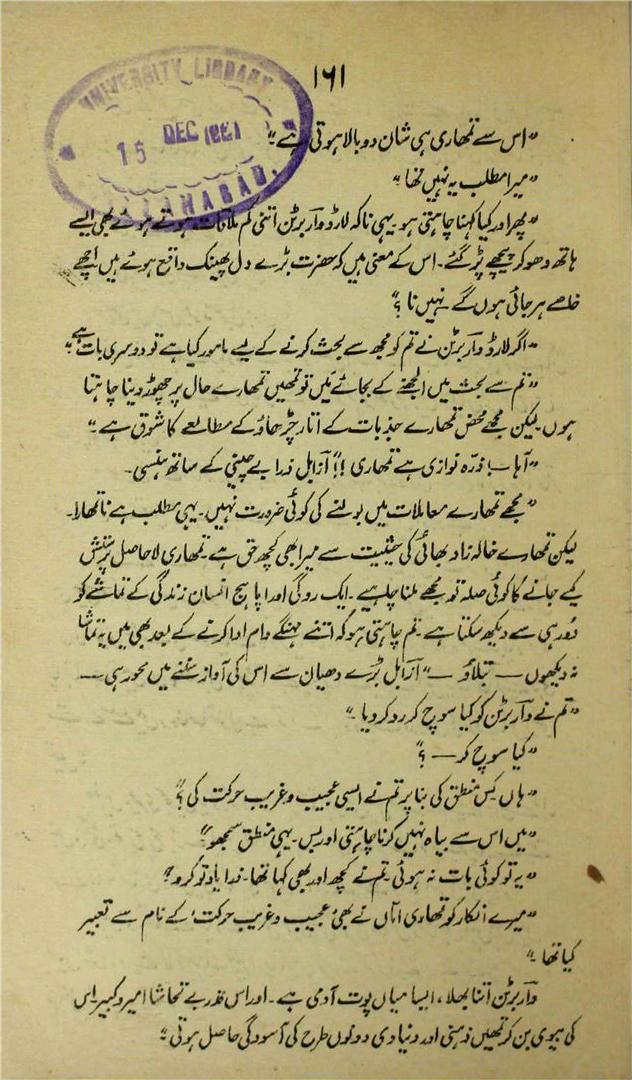 ۱۶۱
UNIVERSITY LIBRARY
15 DEC 1961
ALLAHABAD.
"اس سے تمھاری ہی شان دوبالا ہوتی ہے"
"میرا مطلب یہ نہیں تھا"
"پھر اور کیا کہنا چاہتی ہو یہی نا کہ لارڈ وآربرٹن اتنی کم ملاقات ہوتے ہوئے بھی ایسے
ہاتھ دھو کر پیچھے پڑ گئے۔ اس کے معنی ہیں کہ حضرت بڑے دل پھینک واقع ہوئے ہیں اچھے
خاصے ہرجائی ہوں گے نہیں نا؟"
"اگر لارڈ وآربرٹن نے تم کو مجھ سے بحث کرنے کے لیے مامور کیا ہے تو دوسری بات ہے"
"تم سے بحث میں الجھنے کے بجائے میں تو تمھیں تمھارے حال پر چھوڑ دینا چاہتا
ہوں لیکن مجھے محض تمھارے جذبات کے اتار چڑھاؤ کے مطالعے کا شوق ہے۔"
"آہا ۔! ذرّہ نوازی ہے تمھاری!!" آزابل ذرا بے چینی کے ساتھ ہنسی۔
"مجھے تمھارے معاملات میں بولنے کی کوئی ضرورت نہیں۔ یہی مطلب ہے نا تمھارا۔
لیکن تمھارے خالہ زاد بھائی کی حیثیت سے میرا بھی کچھ حق ہے۔ تمھاری لاحاصل پرستش
کیے جانے کا کوئی صلہ تو مجھے ملنا چاہیے۔ ایک روگی اور اپاہج انسان زندگی کے تماشے کو
دُور ہی سے دیکھ سکتا ہے۔ تم چاہتی ہو کہ اتنے مہنگے دام ادا کرنے کے بعد بھی میں یہ تماشا
نہ دیکھوں — بتلاؤ —" آزابل بڑے دھیان سے اس کی آواز سننے میں محو رہی —
"تم نے وآربرٹن کو کیا سوچ کر رد کر دیا۔"
"کیا سوچ کر —؟"
"ہاں کس منطق کی بنا پر تم نے ایسی عجیب و غریب حرکت کی؟"
"میں اس سے بیاہ نہیں کرنا چاہتی اور بس۔ یہی منطق سمجھو"
"یہ تو کوئی بات نہ ہوئی۔ تم نے کچھ اور بھی کہا تھا۔ ذرا یاد تو کرو؟
"میرے انکار کو تمھاری امّاں نے بھی 'عجیب و غریب حرکت' کے نام سے تعبیر
کیا تھا۔"
وآربرٹن اتنا بھلا، ایسا میاں پوت آدمی ہے۔ اور اس قدر بے تحاشا امیر و کبیر اس
کی بیوی بن کر تمھیں ذہنی اور دنیاوی دونوں طرح کی آسودگی حاصل ہوتی"